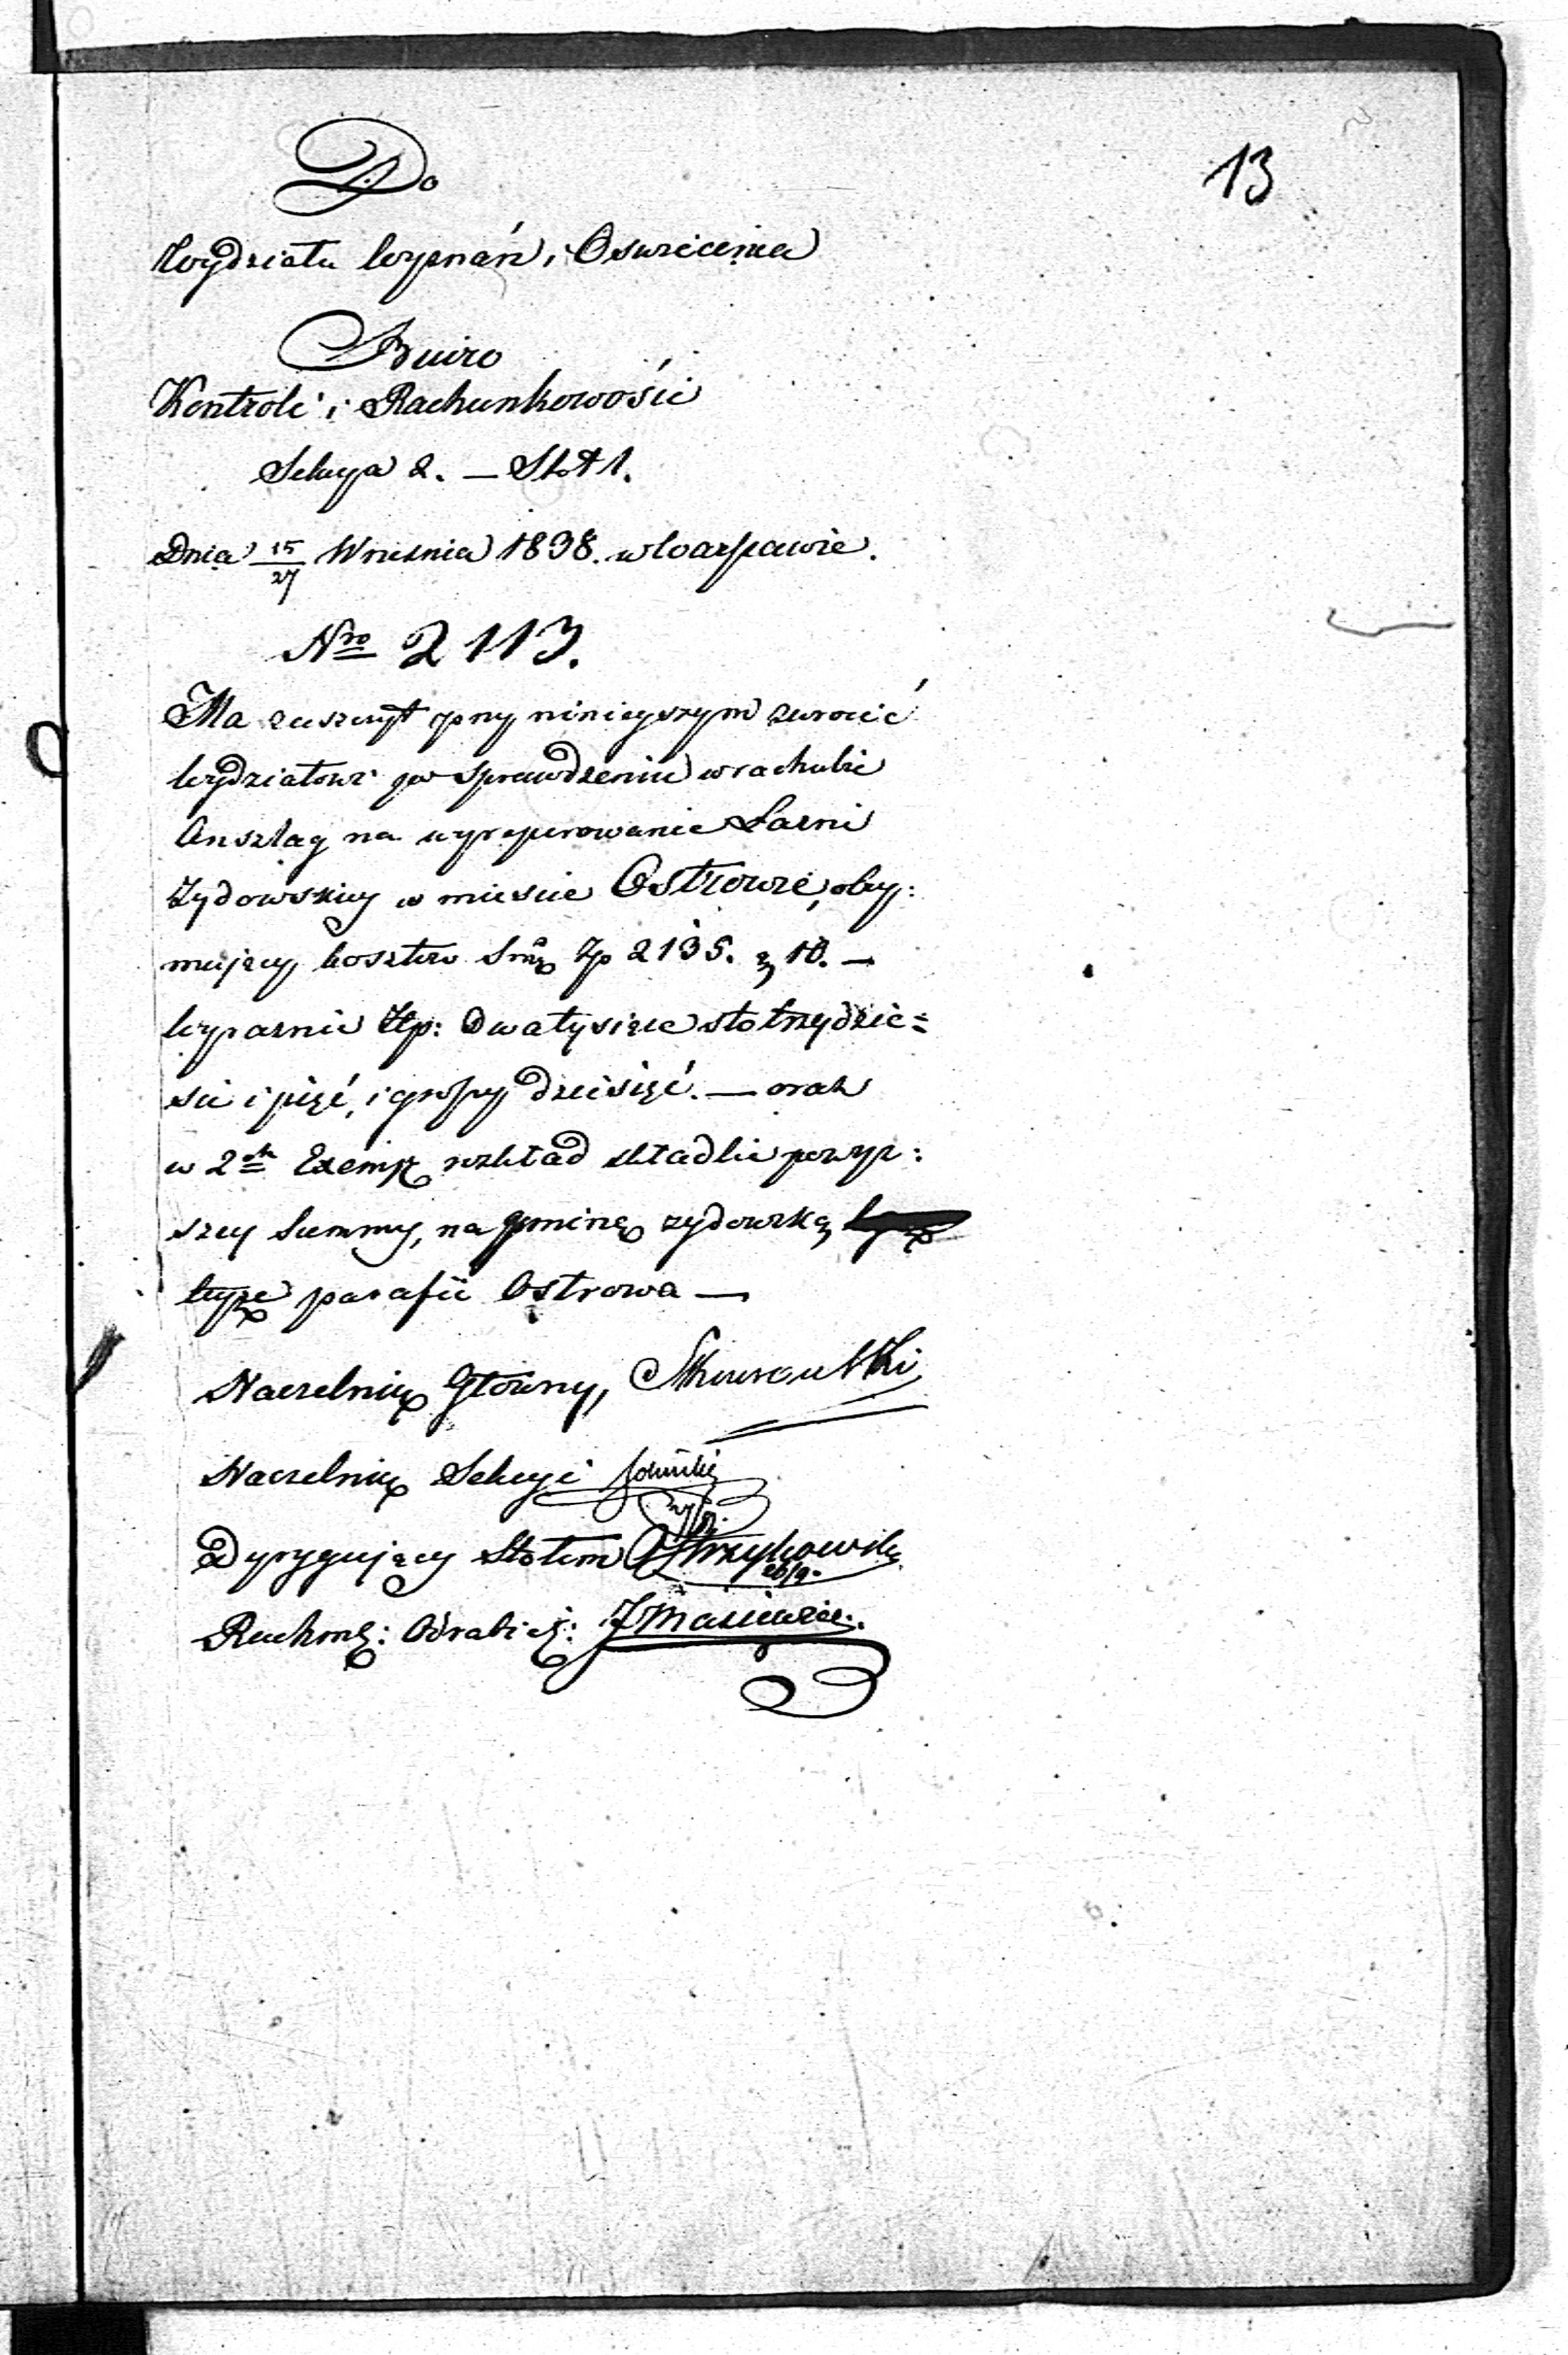 13
Do
Wydziału Wyznań i Oswiecenia
Biuro
Kontroli i Rachunkowości
Sekcya 2. — Stół 1.
Dnia 15/27 Wrzesnia 1838. w Warszawie.
Nro 2113.
Ma zaszczyt przy niniejszym zwrócić
Wydziałowi po sprawdzeniu w rachubie
Anszlag na wyreperowanie Łazni
Zydowskiey w miescie Ostrowie, obey:
mujący kosztow Smę Zp 2135. g 10. —
wyraznie Złp: Dwatysiące stotrzydzie=
sci i pięć, i groszy dziesięć. — oraz
w 2ch Exempl rozkład składki powyż:
szey Summy, na gminę zydowską
teyże parafii Ostrowa —
Naczelnik Główny,
Naczelnik Sekcyi
27/9.
Dyrygujący Stołem
26/9.
Rachmz: